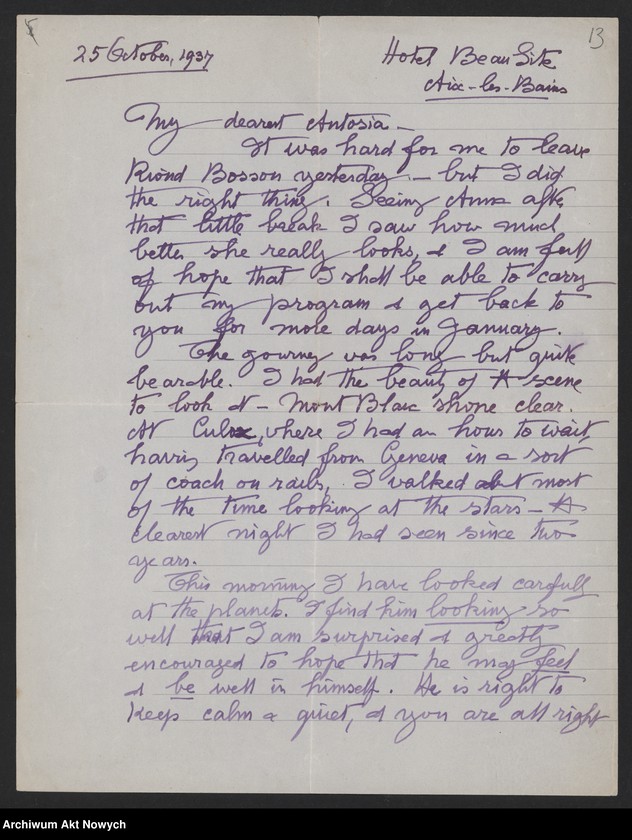 13
25 October, 1937
Hotel Beau Site
Aix-les-Bains
My dearest Antosia —
It was hard for me to leave
Riond Bosson yesterday — but I did
the right thing. Seeing Anna after
that little break I saw how much
better she really looks, & I am full
of hope that I shall be able to carry
out my program & get back to
you for more days in January.
The journey was long but quite
bearable. I had the beauty of A scene
to look at — Mont Blanc shone clear.
At Culoz, where I had an hour to wait,
having travelled from Geneva in a sort
of coach on rails, I walked about most
of the time looking at the stars — A
clearest night I had seen since two
years.
This morning I have looked carefully
at the planets. I find him looking so
well that I am surprised & greatly
encouraged to hope that he may feel
& be well in himself. He is right to
keep calm & quiet, & you are all right
Archiwum Akt Nowych